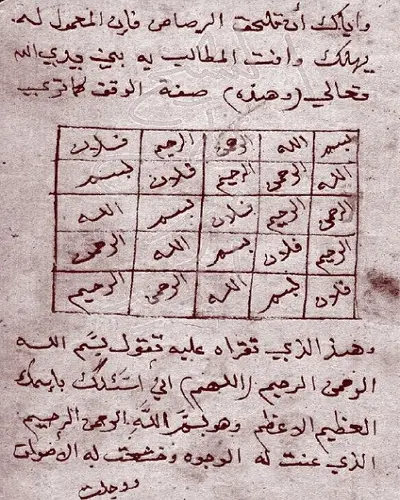 واياك أن تلحق الرصاص فإن المعمول له
يهلك وانت المطالب به بين يدي الله
تعالى (وهذه) صفة الوفق كما ترى
بسم الله الرحمن الرحيم فلان
الله الرحمن الرحيم فلان بسم
الرحمن الرحيم فلان بسم الله
الرحيم فلان بسم الله الرحمن
فلان بسم الله الرحمن الرحيم
وهذ الذي تقراه عليه تقول بسم الله
الرحمن الرحيم (اللهم) اني اسئلك بإسمك
العظيم الاعظم وهو بسم الله الرحمن الرحيم
الذي عنت له الوجوه وخشعت له الاصوات
ووجلت